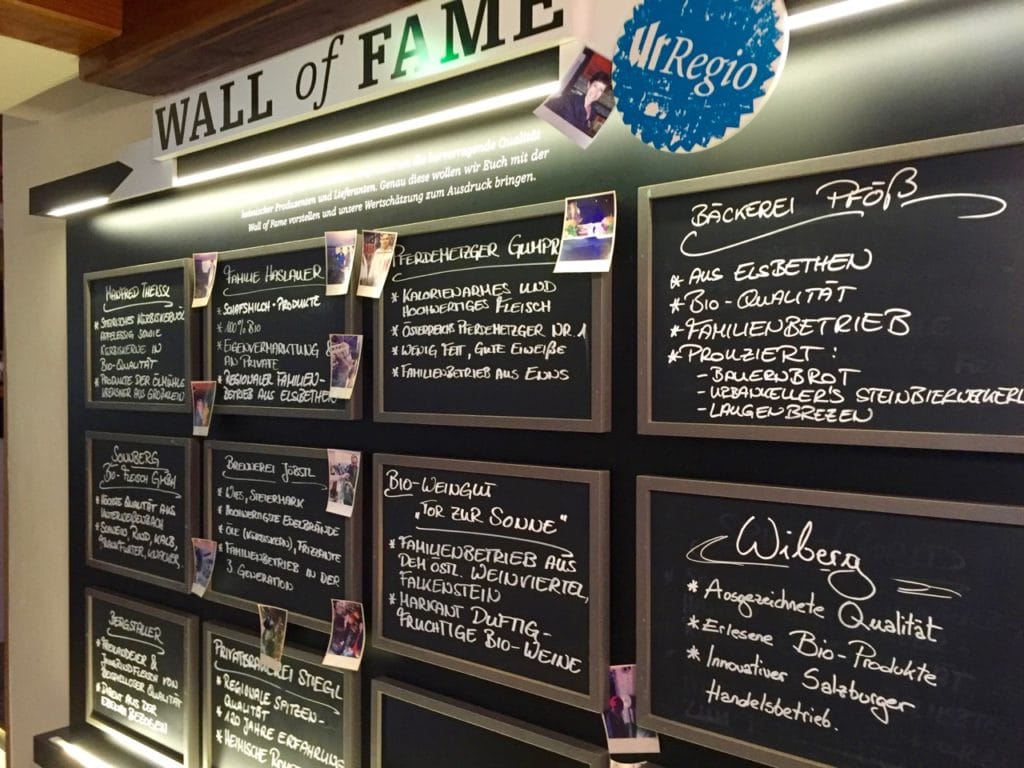 WALL of FAME
urRegio
hervorragende Qualität
heimischer Produzenten und Lieferanten. Genau diese wollen wir Euch mit der
Wall of Fame vorstellen und unsere Wertschätzung zum Ausdruck bringen.
MANFRED THEISSL
* STEIRISCHES KÜRBISKERNÖL
APFELESSIG SOWIE
KÜRBISKERNE IN
BIO-QUALITÄT
* PRODUKTE DER ÖLMÜHLE
AUS
FAMILIE HASLAUER
* SCHAFSMILCH-PRODUKTE
* 100% BIO
* EIGENVERMARKTUNG
AN PRIVATE
* REGIONALER FAMILIEN-
BETRIEB AUS ELSBETHEN
PFERDEMETZGER GUMPR
* KALORIENARMES UND
HOCHWERTIGES FLEISCH
* ÖSTERREICHS PFERDEMETZGER NR. 1
* WENIG FETT, GUTE EIWEIßE
* FAMILIENBETRIEB AUS ENNS
BÄCKEREI PFÖß
* AUS ELSBETHEN
* BIO-QUALITÄT
* FAMILIENBETRIEB
* PROUZIERT:
- BAUERNBROT
- URBANKELLER'S STEINBIERWECKERL
- LAUGENBREZEN
SONNBERG
BIO-FLEISCH GMBH
* HÖCHSTE QUALITÄT AUS
UNTERWEIßENBACH
* SCHWEIN, RIND, KALB,
FRANKFURTER, KNACKER,
BRENNEREI JÖBSTL
* WIES, STEIERMARK
* HOCHWERTIGSTE EDELBRÄNDE
* ÖLE (KÜRBISKERN), FRIZZANTE
* FAMILIENBETRIEB IN DER
3. GENERATION
BIO-WEINGUT
„TOR ZUR SONNE"
* FAMILIENBETRIEB AUS
DEM ÖSTL. WEINVIERTEL,
FALKENSTEIN
* MARKANT DUFTIG-
FRUCHTIGE BIO-WEINE
Wiberg
* Ausgezeichnete Qualität
* Erlesene Bio-Produkte
* Innovativer Salzburger
Handelsbetrieb.
* FREILANDEIER &
JUNGRINDFLEISCH VON
QUALITÄT
* DIREKT AUS DER
BEZOGEN
PRIVATBRAUEREI STIEGL
* REGIONALE SPITZEN-
QUALITÄT
* 120 JAHRE ERFAHRUNG
* HEIMISCHE